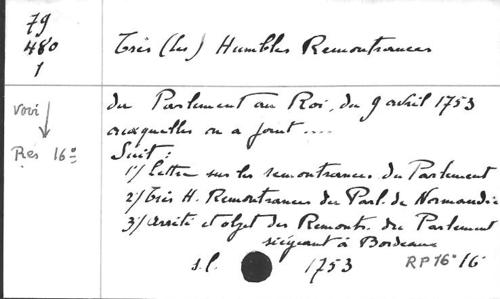 79
480
1
Très (Les) Humbles Remontrances
du Parlement au Roi, du 9 avril 1753
auxquelles on a joint ....
Suit :
1°/ Lettre sur les remontrances du Parlement
2°/ Très H. Remontrances du Parl. de Normandie
3°/ Arrêté et objet des Remontr. du Parlement
siégeant à Bordeaux
s.l. 1753
RP 16° 16
Rés 16°